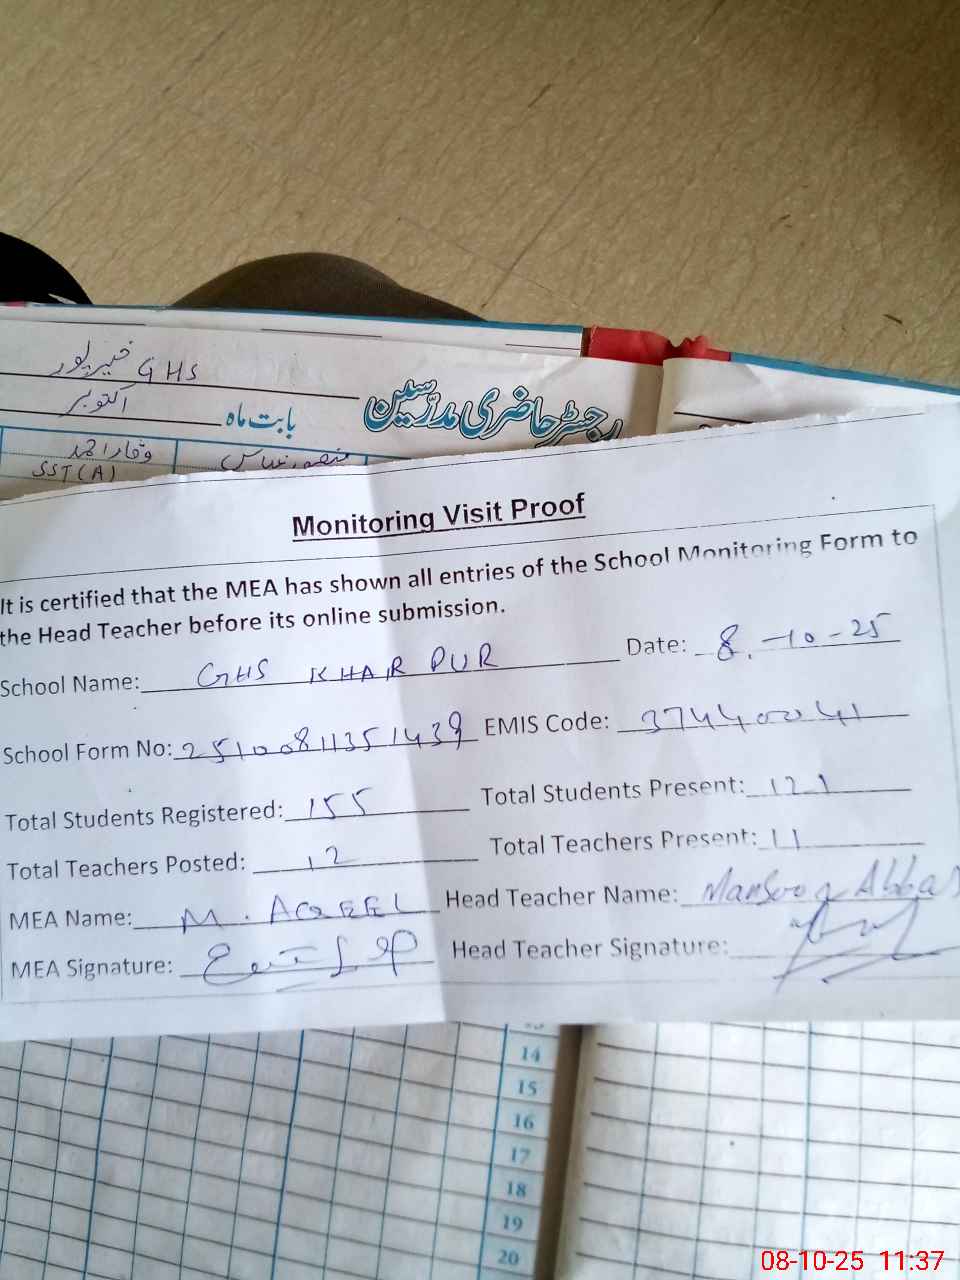 GHS خیرپور
اکتوبر
بابت ماہ
رجسٹر حاضری مدرسین
وقار احمد
SST(A)
منصور عباس
Monitoring Visit Proof
It is certified that the MEA has shown all entries of the School Monitoring Form to
the Head Teacher before its online submission.
School Name: GHS KHAIR PUR Date: 8-10-25
School Form No: 25100811351439 EMIS Code: 37440041
Total Students Registered: 155 Total Students Present: 121
Total Teachers Posted: 12 Total Teachers Present: 11
MEA Name: M. AQEEL Head Teacher Name: Mansoor Abbas
MEA Signature: Head Teacher Signature:
14
15
16
17
18
19
20
08-10-25 11:37